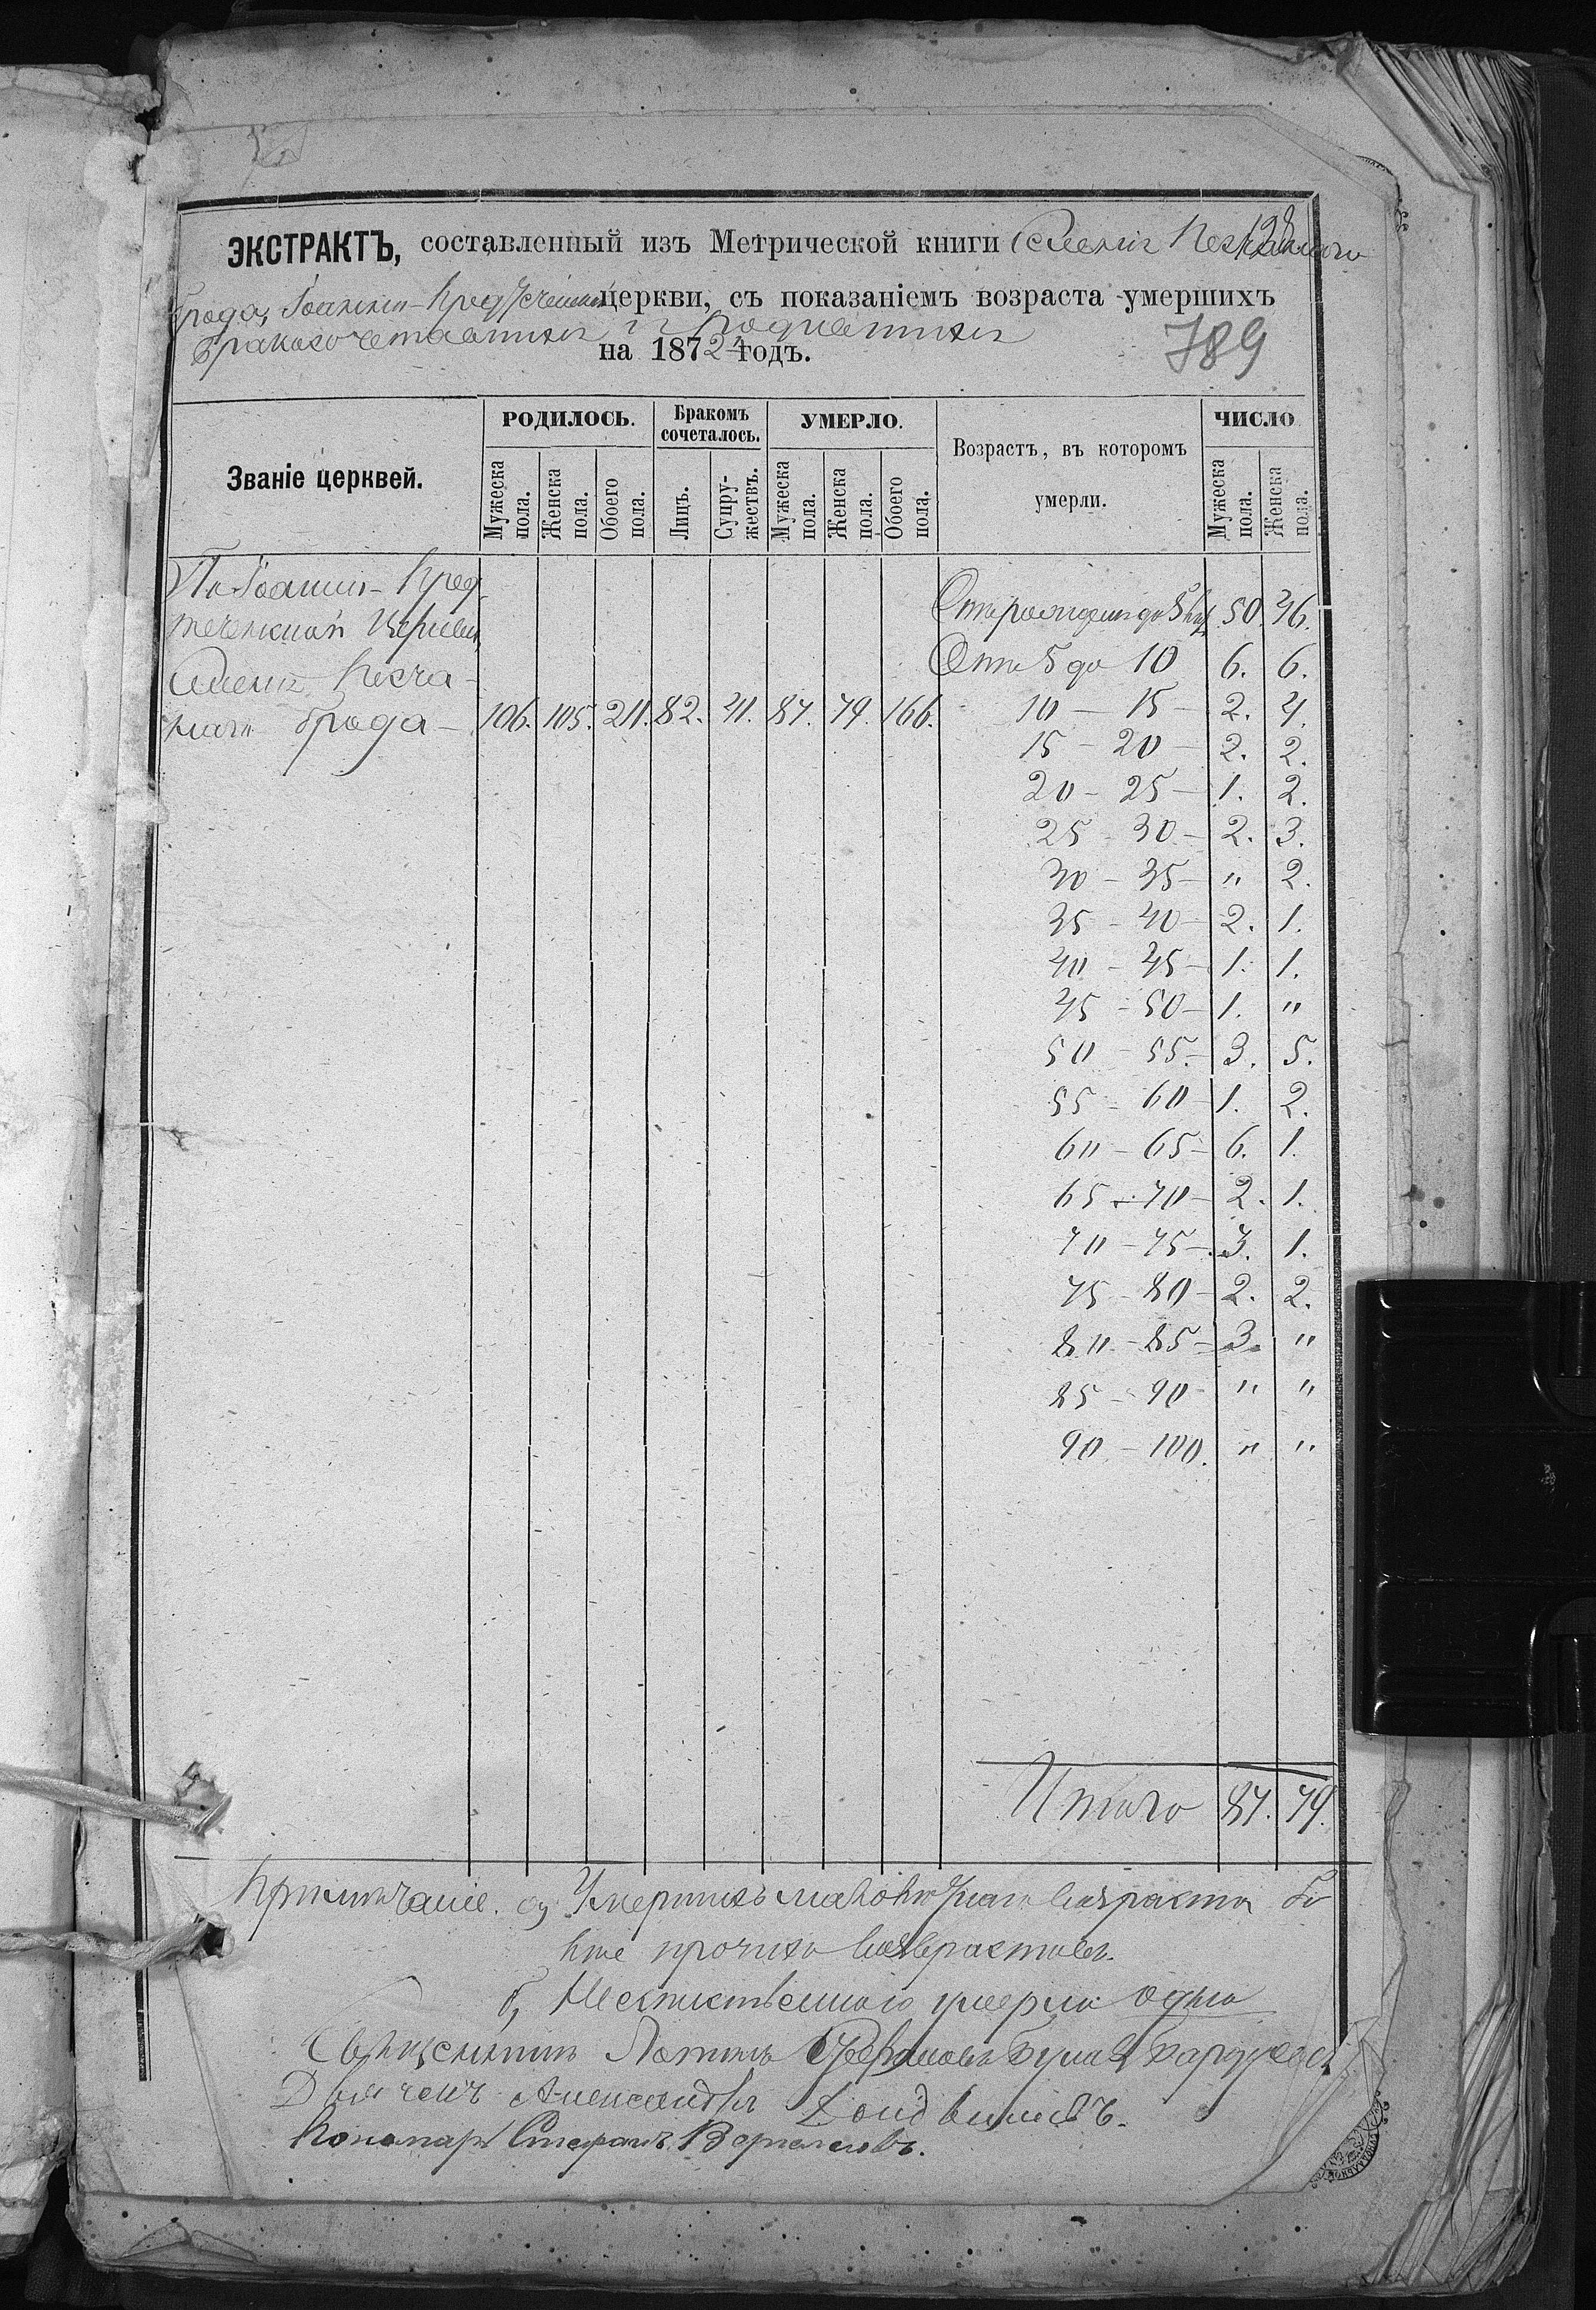 128
ЭКСТРАКТЪ, составленный изъ Метрической книги Селенія Песчанаго
брода, Іоанно-Предтеченской церкви, съ показаніемъ возраста умершихъ
бракосочетавшихся и родившихся
на 1872 годъ.
789
Званіе церквей. РОДИЛОСЬ. Бракомъ сочеталось. УМЕРЛО. Возрастъ, въ которомъ умерли. ЧИСЛО
Мужеска пола. Женска пола. Обоего пола. Лицъ. Супружествъ. Мужеска пола. Женска пола. Обоего пола. Мужеска пола. Женска пола.
По Іоанно-Пред-
теченской Церкви
Селенія Песча-
наго брода — 106. 105. 211. 82. 41. 87. 79. 166.
Отъ рожденія до 5 лѣтъ 50. 46.
Отъ 5 до 10 6. 6.
10 — 15 — 2. 4.
15 — 20 — 2. 2.
20 — 25 — 1. 2.
25 — 30 — 2. 3.
30 — 35 — " 2.
35 — 40 — 2. 1.
40 — 45 — 1. 1.
45 — 50 — 1. "
50 — 55. — 3. 5.
55 — 60 — 1. 2.
60 — 65 — 6. 1.
65 — 70 — 2. 1.
70 — 75 — 3. 1.
75 — 80 — 2. 2.
80 — 85 — 3. "
85 — 90 — " "
90 — 100. " "
Итого 87. 79.
Примѣчаніе. а, Умершихъ малолѣтнаго возраста бо
лѣе прочихъ возрастовъ.
б, Неестественного умерло одна
Священникъ
Дьячекъ Александръ
Пономарь Стефанъ